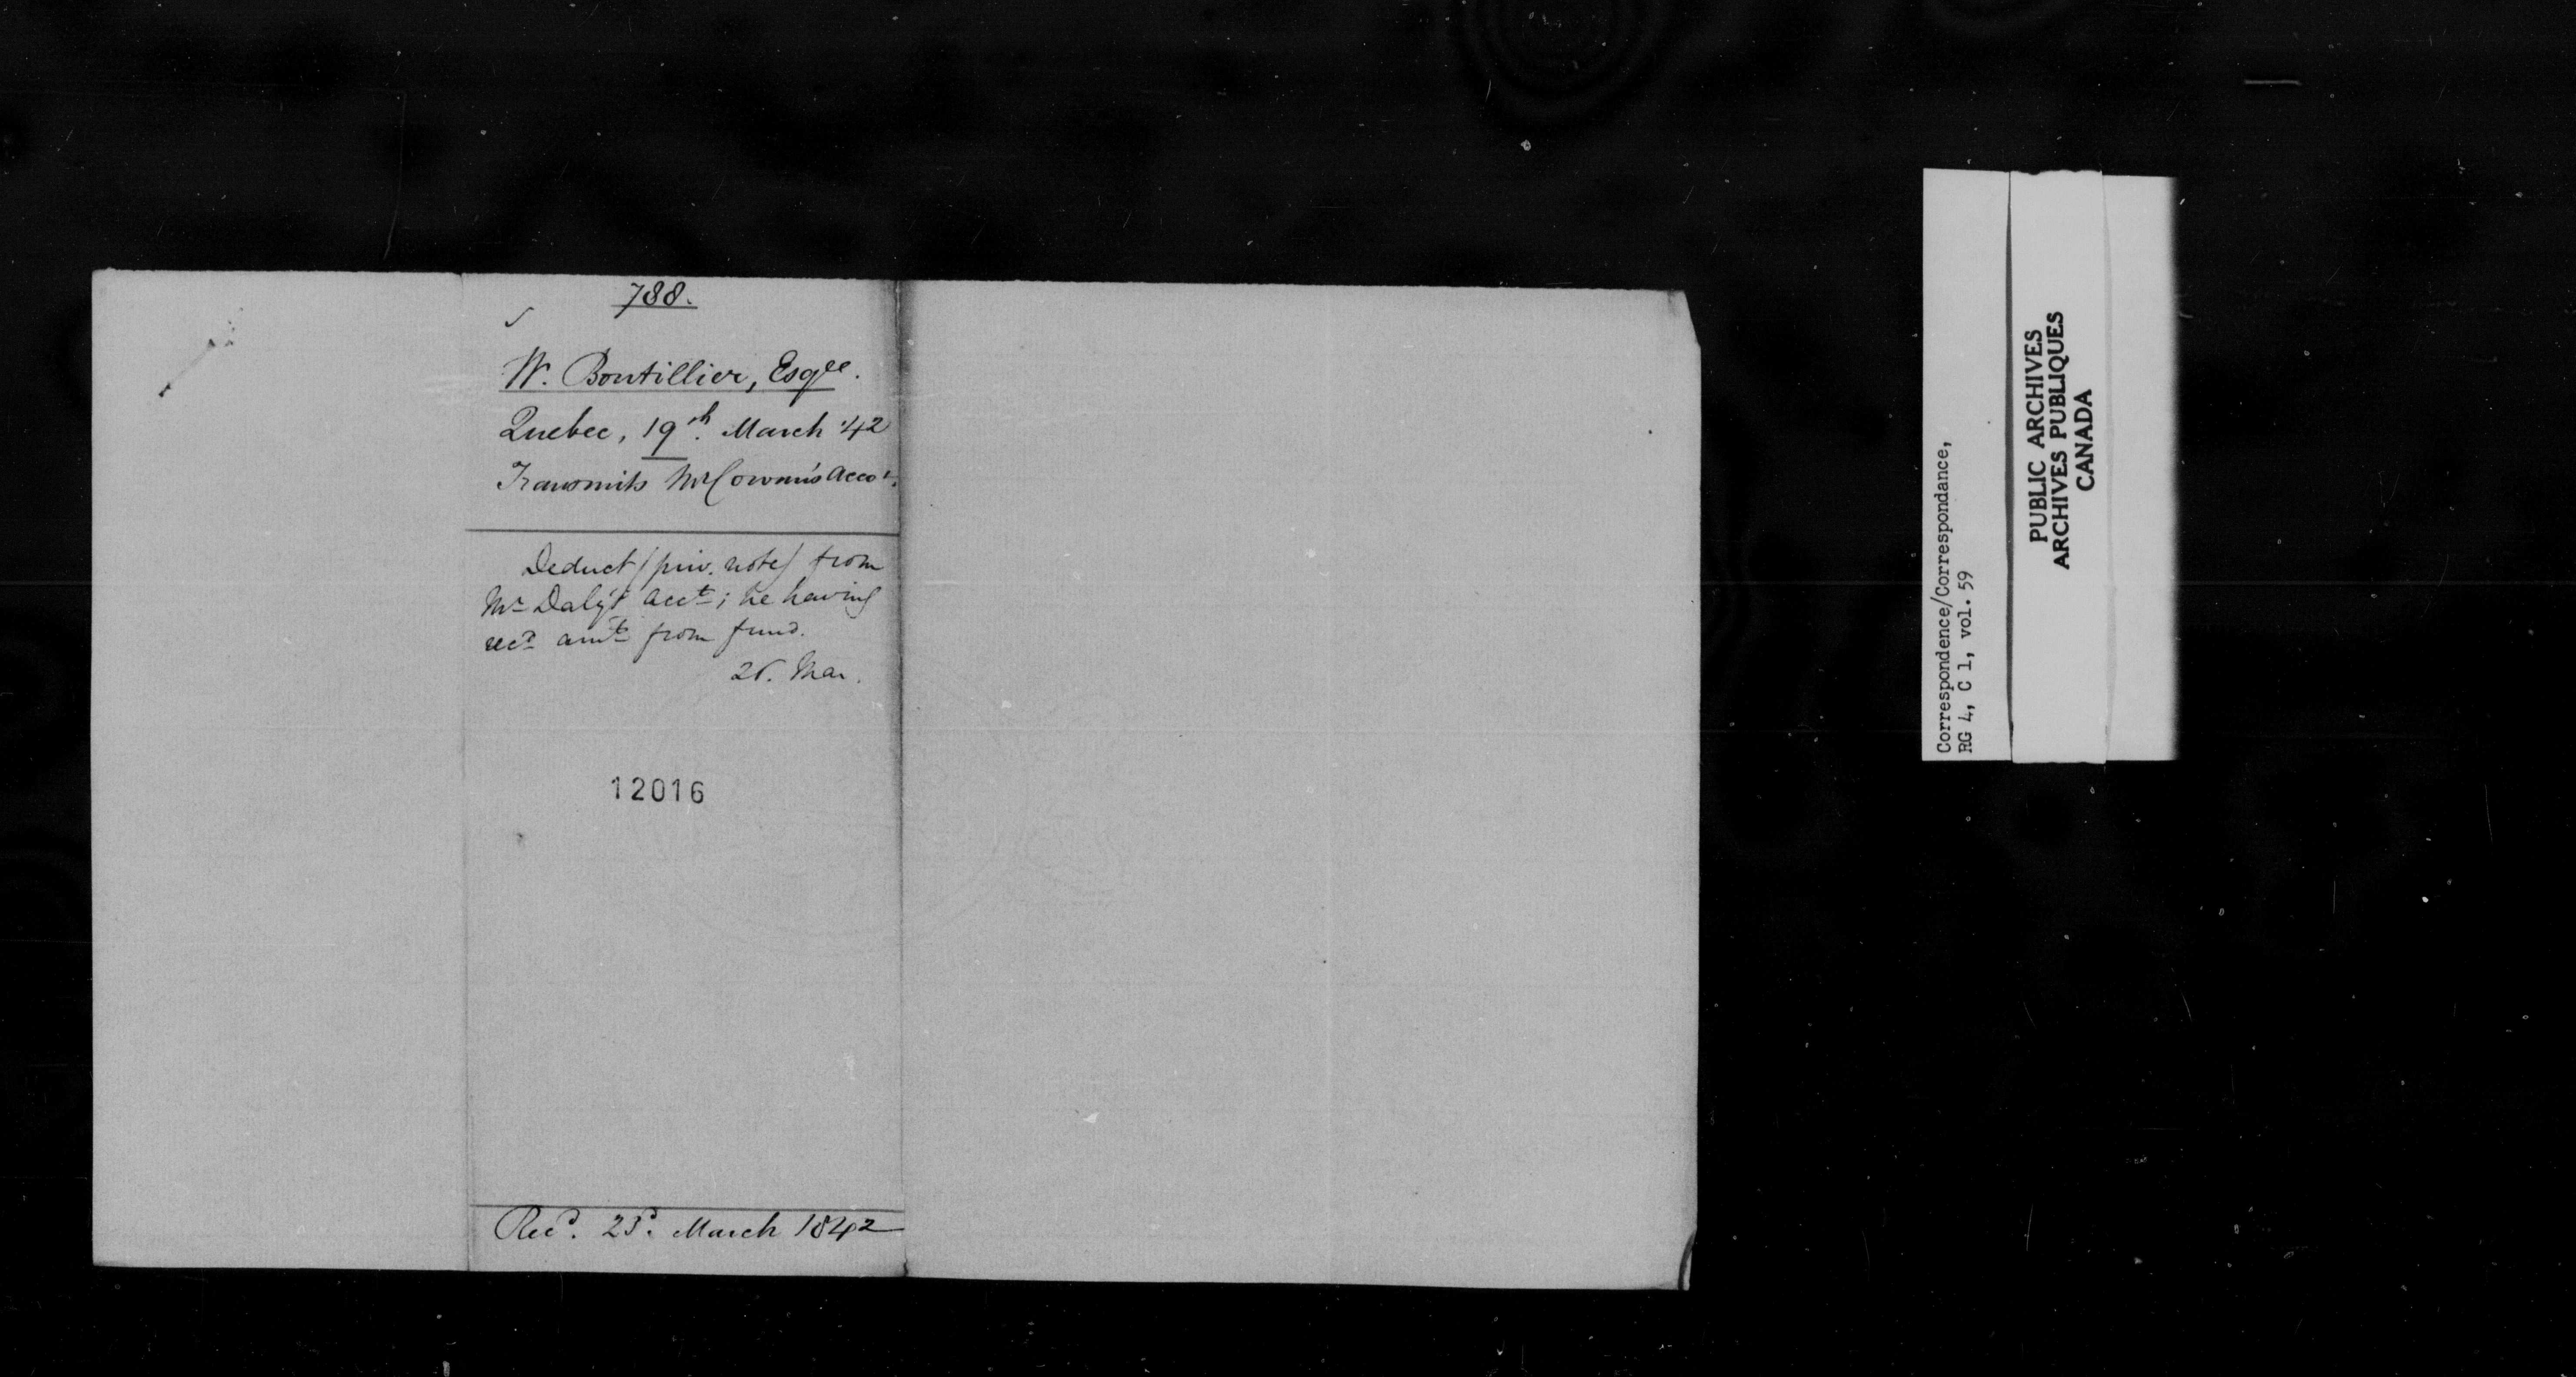 788.
W. Boutillier, Esqre.
Quebec, 19th. March '42
Transmits Mr Cowan's Acco't.
Deduct (priv. note) from
Mr Daly's acct; he having
recd amt from fund.
26. Mar.
12016
Recd. 23d. March 1842
Correspondence/Correspondance,
RG 4, C 1, vol. 59
PUBLIC ARCHIVES
ARCHIVES PUBLIQUES
CANADA